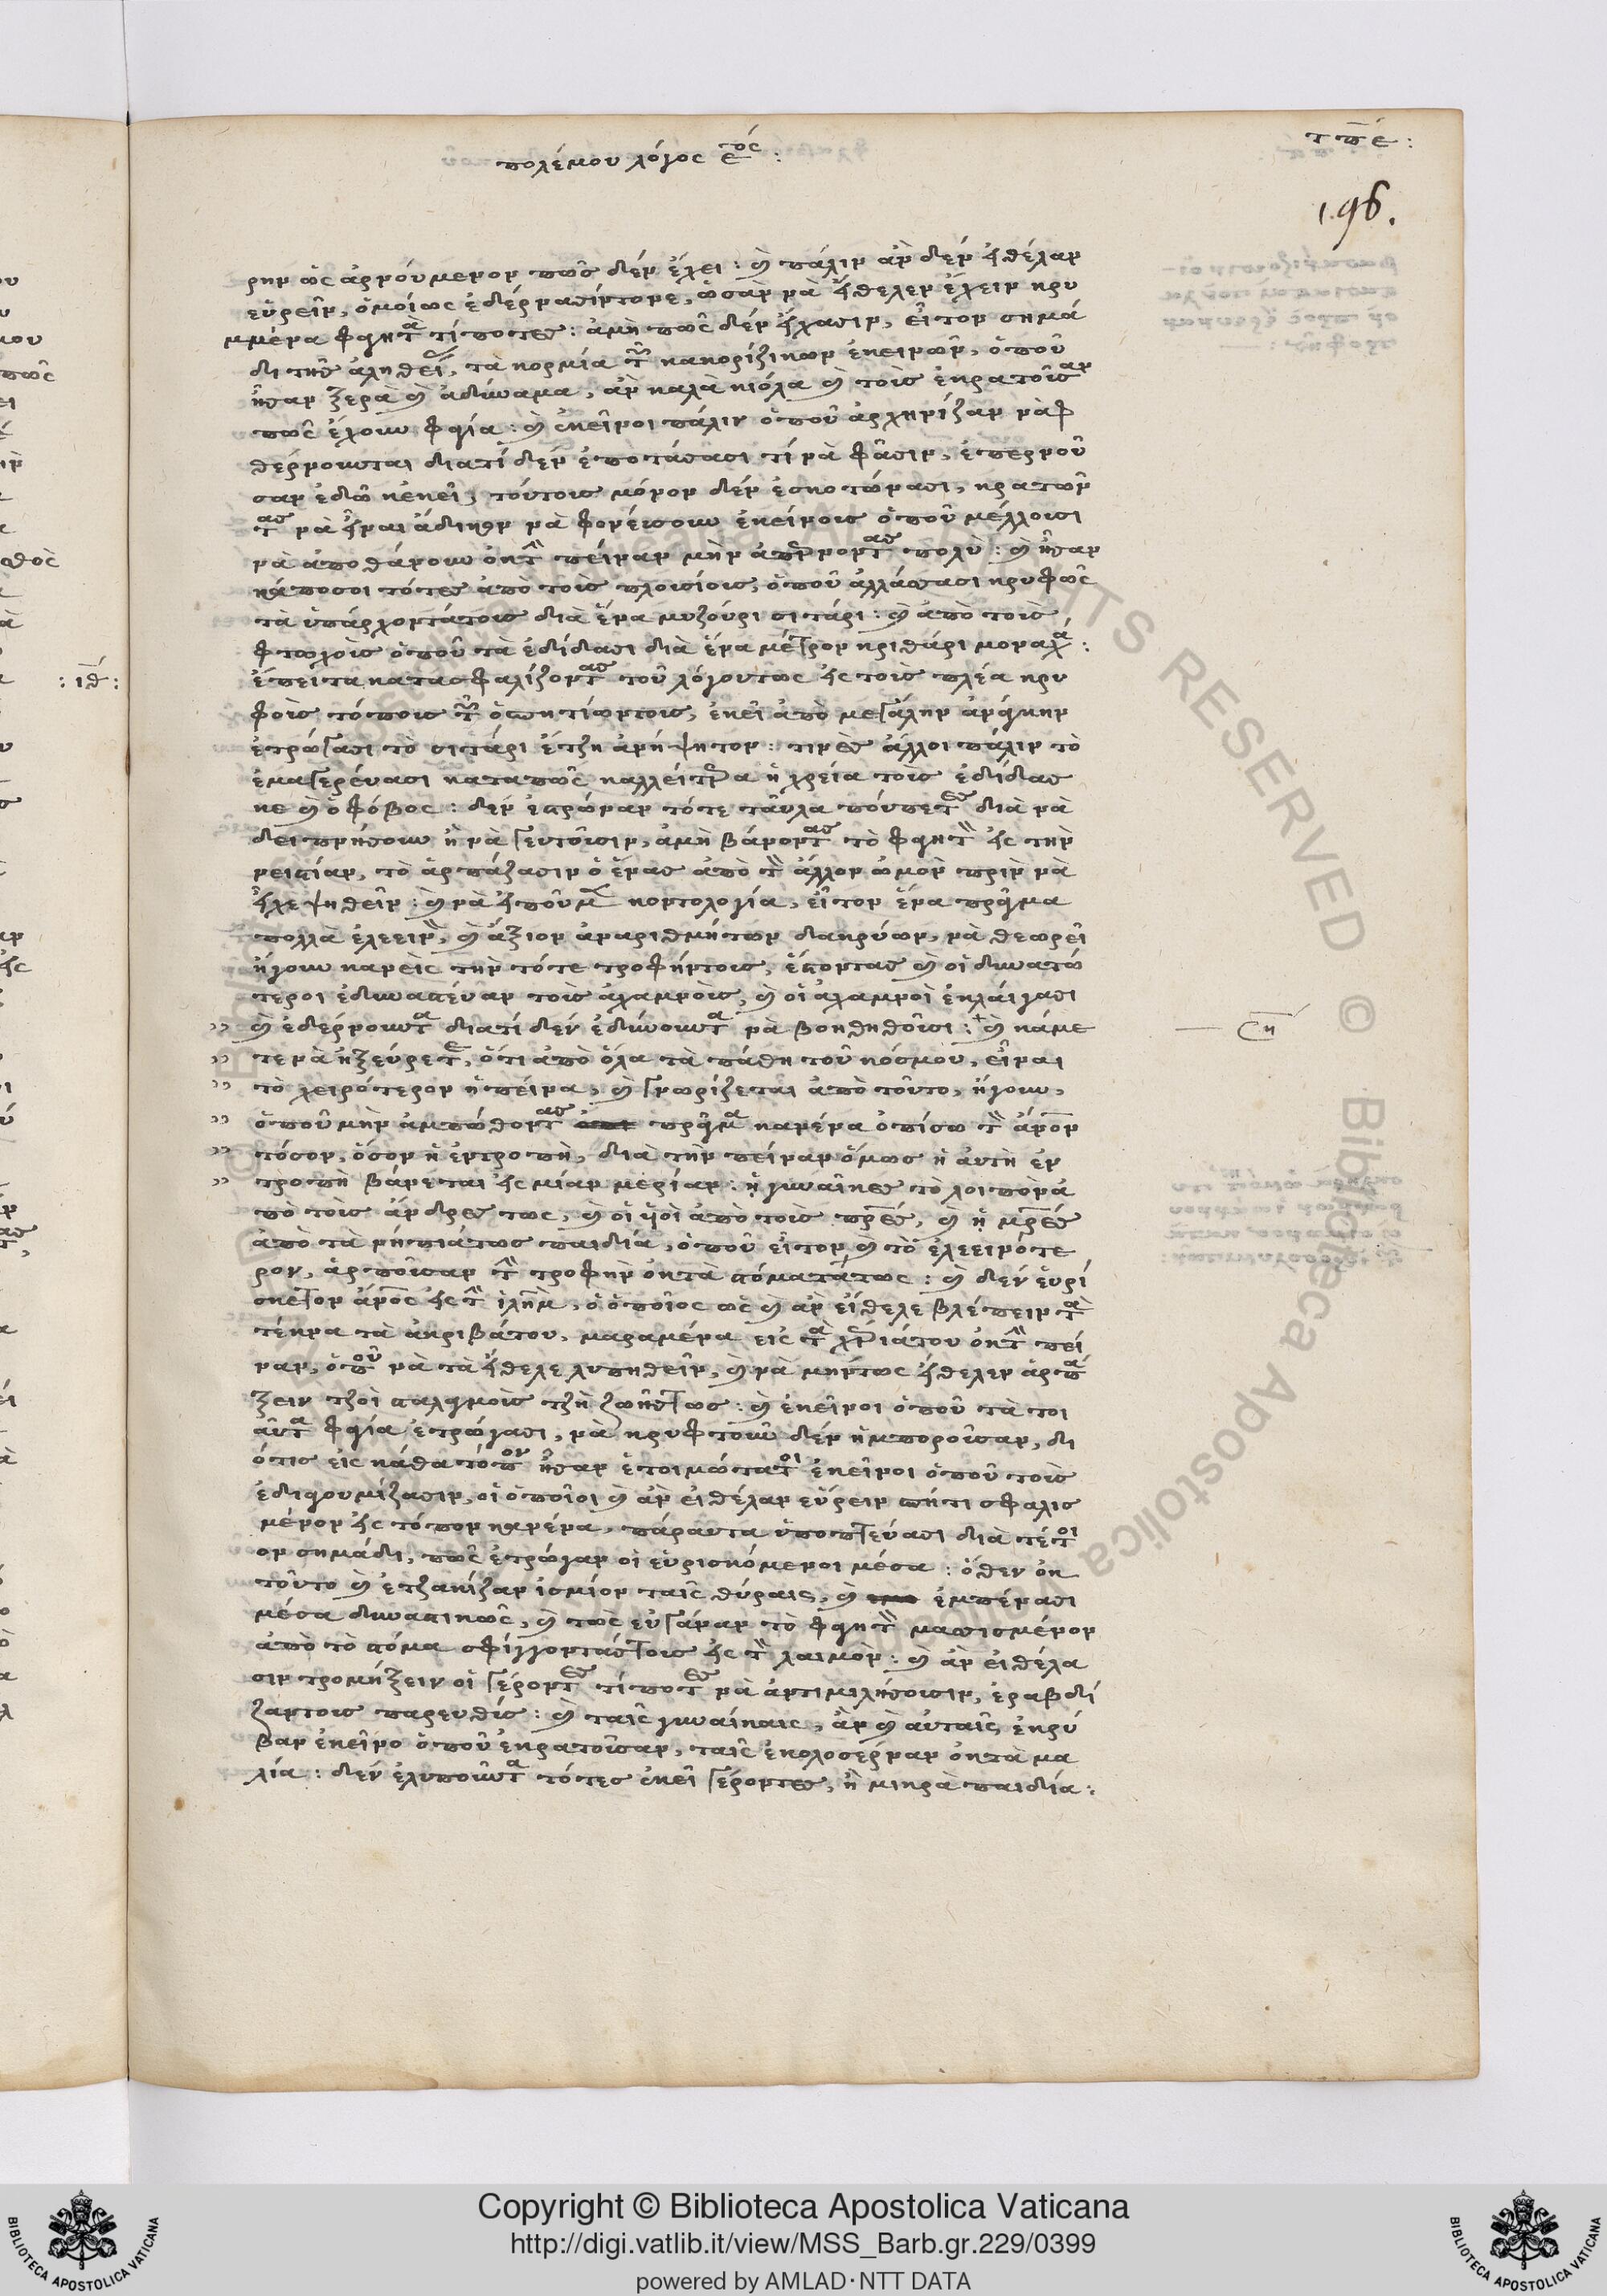 πολέμου λόγος ε^ος :
τπε :
196.
νην ὡς ἀρνούμενον πῶς δὲν ἔχει : καὶ πάλιν ἂν δὲν ἤθέλαν
εὑρεῖν, ὁμοίως ἐδέρνασίντονε, ὡσὰν νὰ ἤθελεν ἔχειν κρυ
μμένα φαητὰ τίποτες : ἀμὴ πῶς δὲν ἤχασιν, εἶτον σημά
δι τῆς ἀληθεί, τὰ κορμία τῶν κακορίζικων ἐκεινῶν, ὁποῦ
ἦσαν ξερὰ καὶ ἀδύναμα, ἂν καλὰ κιόλα καὶ τοὺς ἐκρατοῦσαν
πῶς ἔχουν φαγία : καὶ ἐκεῖνοι πάλιν ὁποῦ ἀρχηνίζαν νὰ φ
θέρνουνται διατί δὲν ἐποτάσασι τί νὰ φᾶσιν, ἐπερνοῦ
σαν ἐδῶ κεκεῖ, τούτους μόνον δὲν ἐσκοτώνασι, κρατῶν
τας νὰ ἦναι ἄδικον νὰ φονεύσουν ἐκείνους ὁποῦ μέλλουσι
νὰ ἀποθάνουν ὀκτὴν πείναν μὴν ἀπερνοντας πολὺ : καὶ ἦσαν
κάποσοι τότες ἀπὸ τοὺς πλουσίους, ὁποῦ ἀλλάσσασι κρυφῶς
τὰ ὑπάρχοντάτους διὰ ἕνα μυζούρι σιτάρι : καὶ ἀπὸ τοὺς
φτωχοὺς ὁποῦ τὰ ἐδίδασι διὰ ἕνα μέτρον κριθάρι μοναχά :
ἔπειτα κατασφαλίζοντας τοῦ λόγουντως εἰς τοὺς πλέα κρυ
φοὺς τόπους τῶν ὀσπητίωντους, ἐκεῖ ἀπὸ μεγάλην ἀνάγκην
ἐτρώγασι τὸ σιτάρι ἔτζη ἀνήψητον : τινὲς ἄλλοι πάλιν τὸ
ἐμαγερεύασι καταπῶς καλλείτερα ἡ χρεία τοὺς ἐδίδας
κε καὶ ὁ φόβος : δὲν ἐστρώναν τότε ταῦλα πούπετες διὰ νὰ
δειπνήσουν ἢ νὰ γευτοῦσιν, ἀμὴ βάνοντας τὸ φαητὸν εἰς τὴν
νειστίαν, τὸ ἁρπάζασιν ὁ ἕνας ἀπὸ τὸν ἄλλον ὠμὸν πρὶν νὰ
ἤχε ψηθεῖν : καὶ νὰ εἰποῦμεν κοντολογία, εἶτον ἕνα πρᾶγμα
πολλὰ ἐλεεινὸν, καὶ ἄξιον ἀναριθμήτων δακρύων, νὰ θεωρεῖ
ἤγουν κανεὶς τὴν τότε τροφήντους, ἔσοντας καὶ οἱ δυνατώ
τεροι ἐδυναστεύαν τοὺς ἀχαμνοὺς, καὶ οἱ ἀχαμνοὶ ἐκλαίγασι
καὶ ἐδέρνουντα διατί δὲν ἐδύνουντα νὰ βοηθηθοῦσι : καὶ κάμε
τε νὰ ἠξεύρετε, ὅτι ἀπὸ ὅλα τὰ πάθη τοῦ κόσμου, εἶναι
τὸ χειρότερον ἡ πείνα, καὶ γνωρίζεται ἀπὸ τοῦτο, ἤγουν,
ὁποῦ μὴν ἀμπώθοντας πρᾶγμα κανένα ὀπίσω τὸν ἄνον
τόσον, ὅσον ἡ ἐντροπὴ, διὰ τὴν πείναν ὅμως ἡ αὐτὴ ἐν
τροπὴ βάνεται εἰς μίαν μεριάν : ἡ γυναῖκες τὸ λοιπὸν ἀ
πὸ τοὺς ἄνδρες τως, καὶ οἱ ὑιοὶ ἀπὸ τοὺς πρες, καὶ ἡ μρες
ἀπὸ τὰ νήπιάτως παιδία, ὁποῦ εἶτον καὶ τὸ ἐλεεινότε
ρον, ἁρποῦσαν τὴν τροφὴν ὀκτὰ στόματάτως : καὶ δὲν εὑρί
σκετον ἄνος εἰς τὴν ἱλημ, ὁ ὁποῖος ὡς καὶ ἂν εἴθελε βλέπειν τὰ
τέκνα τὰ ἀκριβάτου, μαραμένα εἰς τὰ χεριάτου ὀκτὴν πεί
ναν, ὁποῦ νὰ τὰ ἤθελε λυπηθεῖν, καὶ νὰ μηντως ἤθελεν ἁρπά
ξειν τζοὶ σταλαγμοὺς τζὴ ζωῆςτως : καὶ ἐκεῖνοι ὁποῦ τὰ τοι
αῦτα φαγία ἐτρώγασι, νὰ κρυφτοῦν δὲν ἠμποροῦσαν, δι
ότις εἰς κάθα τόπον ἦσαν ἑτοιμώτατοι ἐκεῖνοι ὁποῦ τοὺς
ἐδιαγουμίζασιν, οἱ ὁποῖοι καὶ ἂν εἰθέλαν εὕρειν σπήτι σφαλις
μένον εἰς τόπον κανένα, πάραυτα ὑποπτεύασι διὰ τέτοι
ον σημάδι, πῶς ἐτρώγαν οἱ εὑρισκόμενοι μέσα : ὅθεν ὀκ
τοῦτο καὶ ἐτζακίζαν ἰσμίον ταῖς θύραις, καὶ ἐμπένασι
μέσα δυναστικῶς, καὶ τῶς εὐγάναν τὸ φαητὸν μασσισμένον
ἀπὸ τὸ στόμα σφίγγοντάςτους εἰς τὸν λαιμὸν : καὶ ἂν εἰθέλα
σιν τρομήξειν οἱ γέροντες τίποτες νὰ ἀντιμιλήσουσιν, ἐραβδί
ζαντους παρευθύς : καὶ ταῖς γυναίκαις, ἂν καὶ αὐταῖς ἐκρύ
βαν ἐκεῖνο ὁποῦ ἐκρατοῦσαν, ταῖς ἐκολοσέρναν ὀκτὰ μα
λία : δὲν ἐλυποῦντα τότες ἐκεῖ γέροντες, ἢ μικρὰ παιδία :
: ιδ :
Copyright © Biblioteca Apostolica Vaticana
http://digi.vatlib.it/view/MSS_Barb.gr.229/0399
powered by AMLAD·NTT DATA